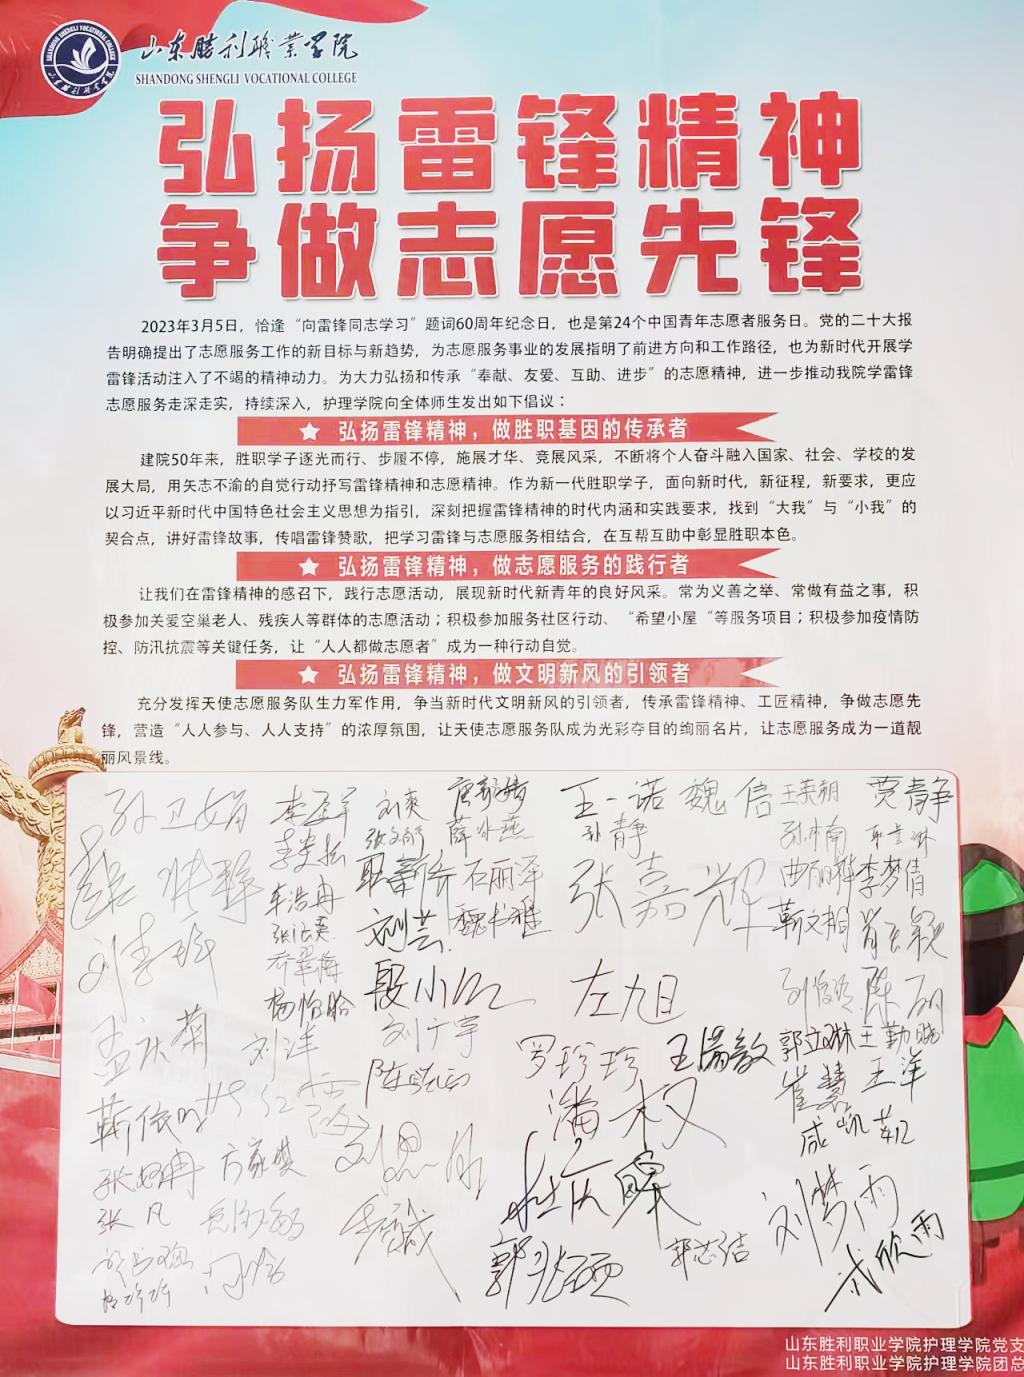 山东胜利职业学院
SHANDONG SHENGLI VOCATIONAL COLLEGE
弘扬雷锋精神
争做志愿先锋
2023年3月5日，恰逢“向雷锋同志学习”题词60周年纪念日，也是第24个中国青年志愿者服务日。党的二十大报
告明确提出了志愿服务工作的新目标与新趋势，为志愿服务事业的发展指明了前进方向和工作路径，也为新时代开展学
雷锋活动注入了不竭的精神动力。为大力弘扬和传承“奉献、友爱、互助、进步”的志愿精神，进一步推动我院学雷锋
志愿服务走深走实，持续深入，护理学院向全体师生发出如下倡议：
★ 弘扬雷锋精神，做胜职基因的传承者
建院50年来，胜职学子逐光而行、步履不停，施展才华、竞展风采，不断将个人奋斗融入国家、社会、学校的发
展大局，用矢志不渝的自觉行动抒写雷锋精神和志愿精神。作为新一代胜职学子，面向新时代，新征程，新要求，更应
以习近平新时代中国特色社会主义思想为指引，深刻把握雷锋精神的时代内涵和实践要求，找到“大我”与“小我”的
契合点，讲好雷锋故事，传唱雷锋赞歌，把学习雷锋与志愿服务相结合，在互帮互助中彰显胜职本色。
★ 弘扬雷锋精神，做志愿服务的践行者
让我们在雷锋精神的感召下，践行志愿活动，展现新时代新青年的良好风采。常为义善之举、常做有益之事，积
极参加关爱空巢老人、残疾人等群体的志愿活动；积极参加服务社区行动、“希望小屋“等服务项目；积极参加疫情防
控、防汛抗震等关键任务，让“人人都做志愿者”成为一种行动自觉。
★ 弘扬雷锋精神，做文明新风的引领者
充分发挥天使志愿服务队生力军作用，争当新时代文明新风的引领者，传承雷锋精神、工匠精神，争做志愿先
锋，营造“人人参与、人人支持”的浓厚氛围，让天使志愿服务队成为光彩夺目的绚丽名片，让志愿服务成为一道靓
丽风景线。
孙卫娟
刘爽
王一诺
魏信
贾青静
孙静
薛冰燕
石丽泽
张嘉辉
李梦倩
车浩冉
刘芸
魏书雅
靳文桐
乔翠梅
杨怡晗
段小红
左九日
陈丽
孟庆菊
刘洋
刘广宇
罗珍珍
王海敏
郭立琳
崔慧
王洋
潘权
方家奘
张凡
杜庆暐
刘梦雨
郭志洁
武欣雨
山东胜利职业学院护理学院党支
山东胜利职业学院护理学院团总